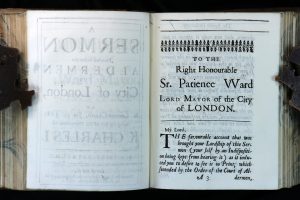 TO THE
Right Honourable
Sr. Patience Ward
LORD MAYOR of the City
of LONDON.
My Lord,
THE favourable account that was
brought your Lordship of this Ser-
mon (your self by an Indispositi-
on being kept from hearing it) as it indu-
ced you to desire to see it in Print; which
seconded by the Order of the Court of Al-
A 3 dermen,